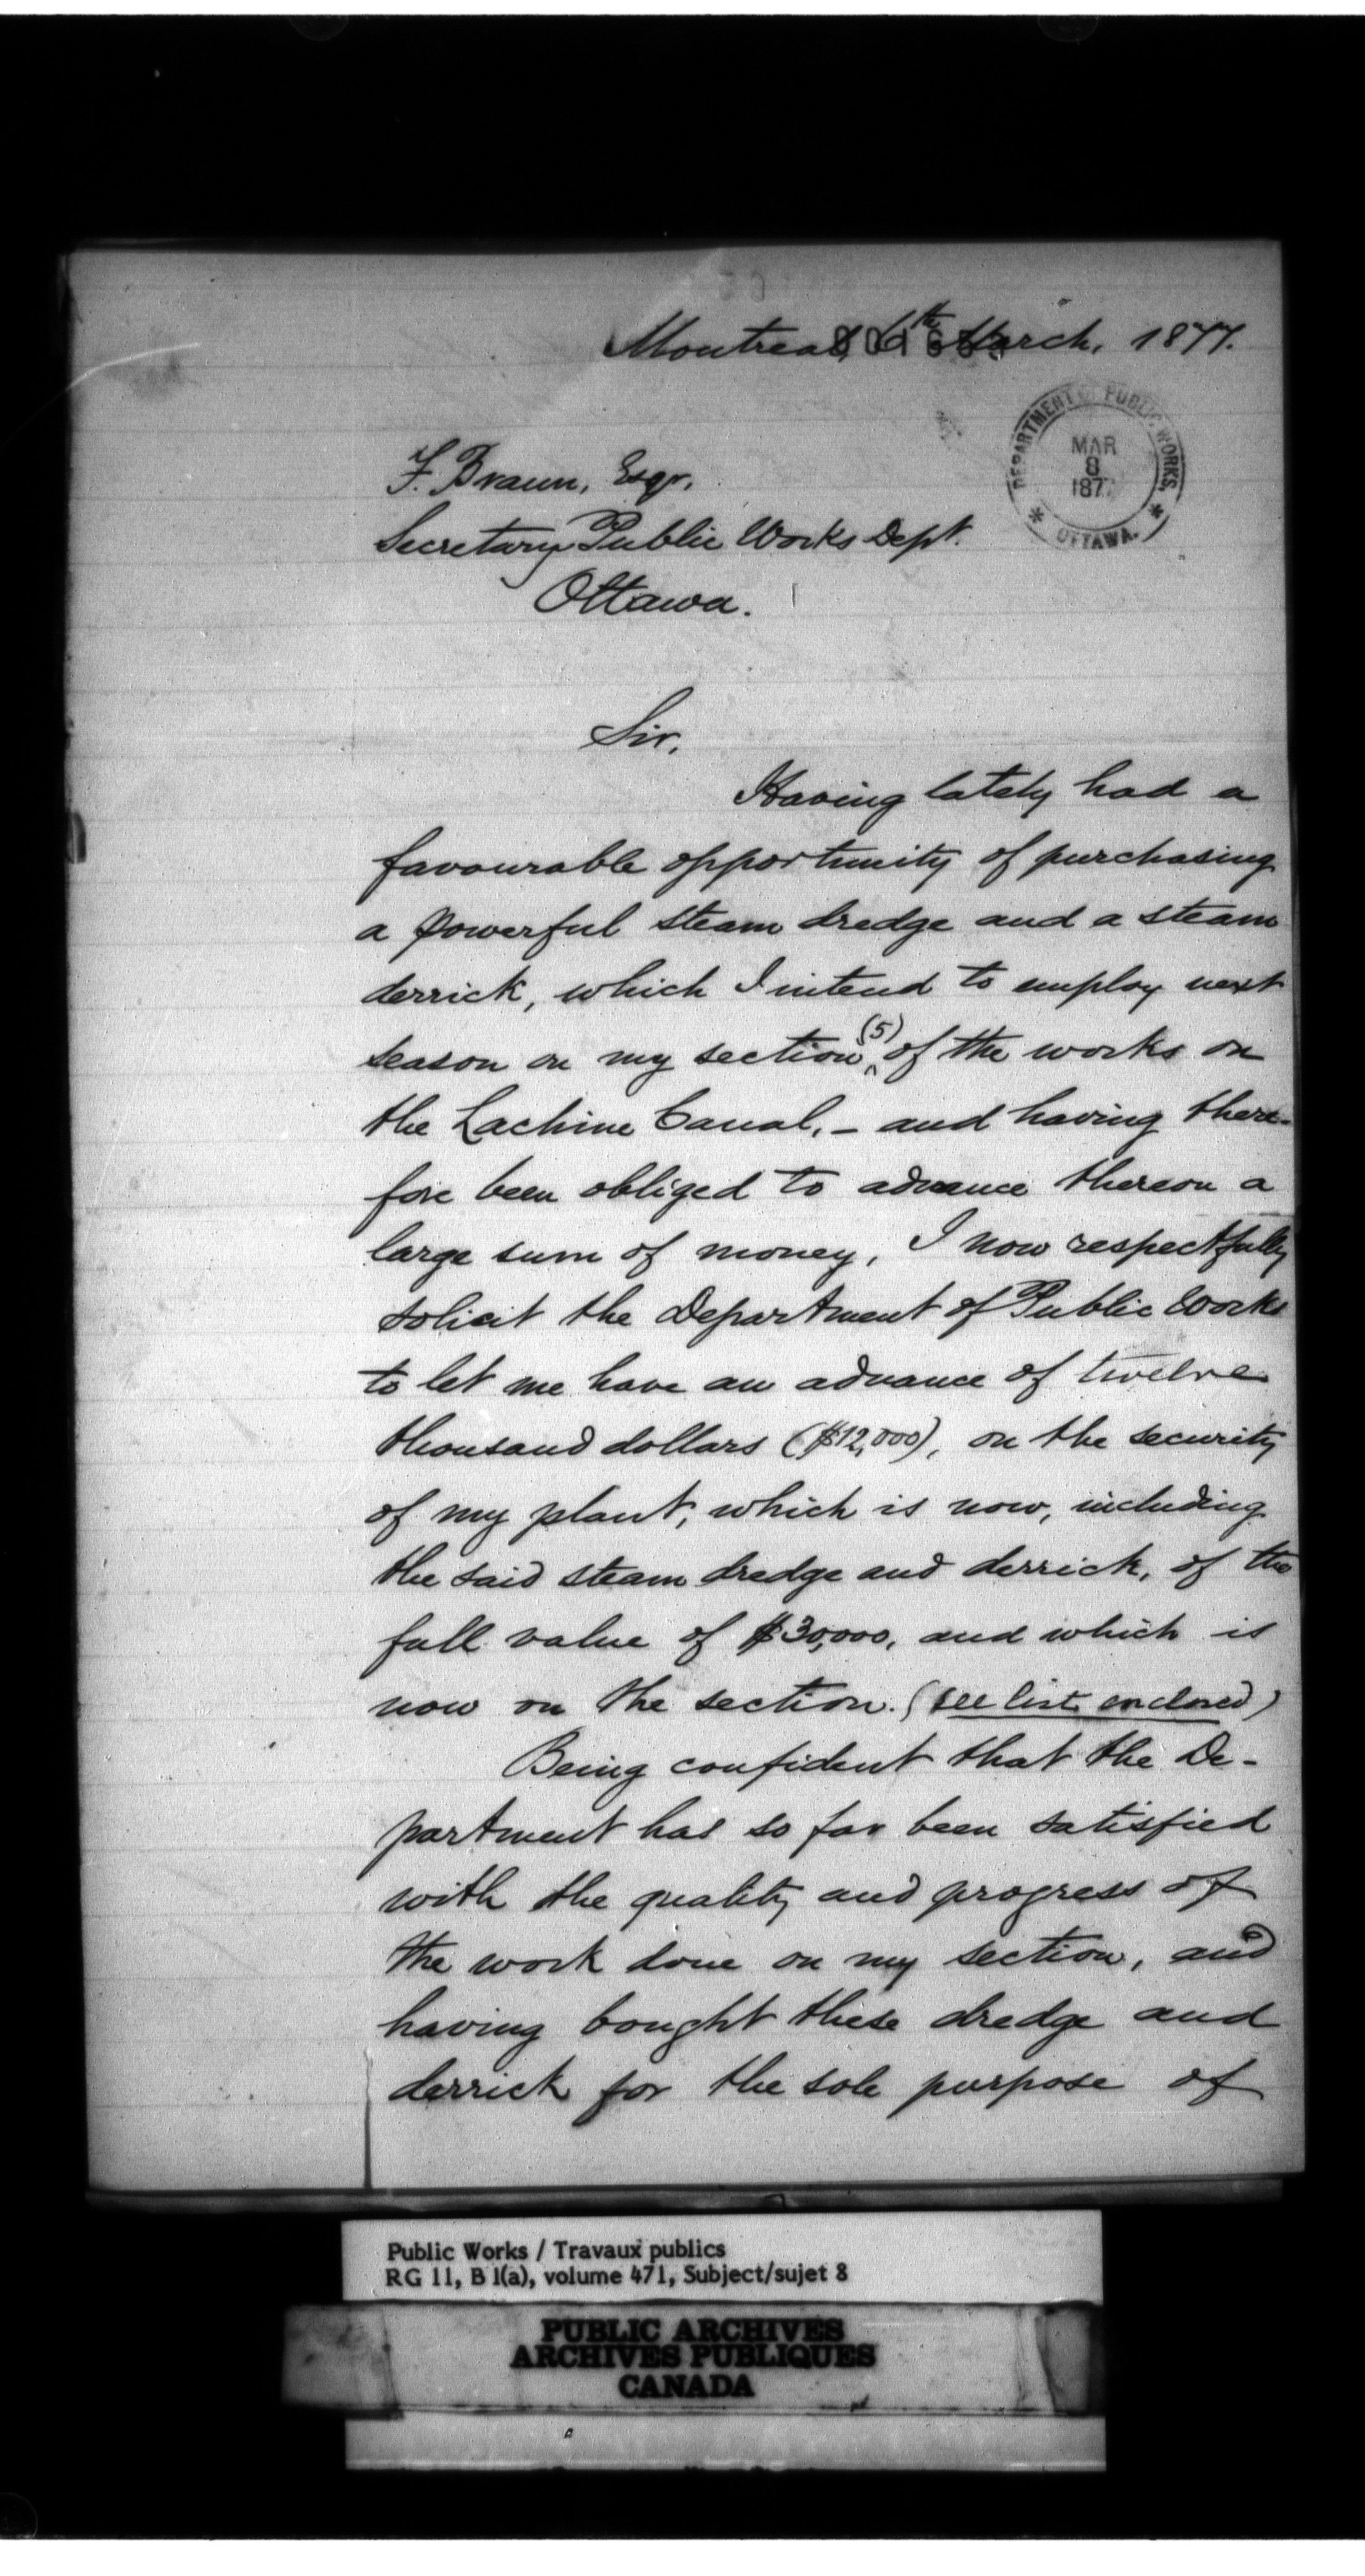 Montreal, 6th March, 1877.
DEPARTMENT OF PUBLIC WORKS,
MAR
8
187
* OTTAWA. *
F. Braun, Esqr.
Secretary Public Works Dept.
Ottawa.
Sir,
Having lately had a
favourable opportunity of purchasing
a powerful steam dredge and a steam
derrick, which I intend to employ next
season on my section (5) of the works on
the Lachine Canal, - and having there-
fore been obliged to advance thereon a
large sum of money, I now respectfully
solicit the Department of Public Works
to let me have an advance of twelve
thousand dollars ($12,000), on the security
of my plant, which is now, including
the said steam dredge and derrick, of the
full value of $30,000, and which is
now on the section. (see list enclosed)
Being confident that the De-
partment has so far been satisfied
with the quality and progress of
the work done on my section, and
having bought these dredge and
derrick for the sole purpose of
Public Works / Travaux publics
RG 11, B 1(a), volume 471, Subject/sujet 8
PUBLIC ARCHIVES
ARCHIVES PUBLIQUES
CANADA